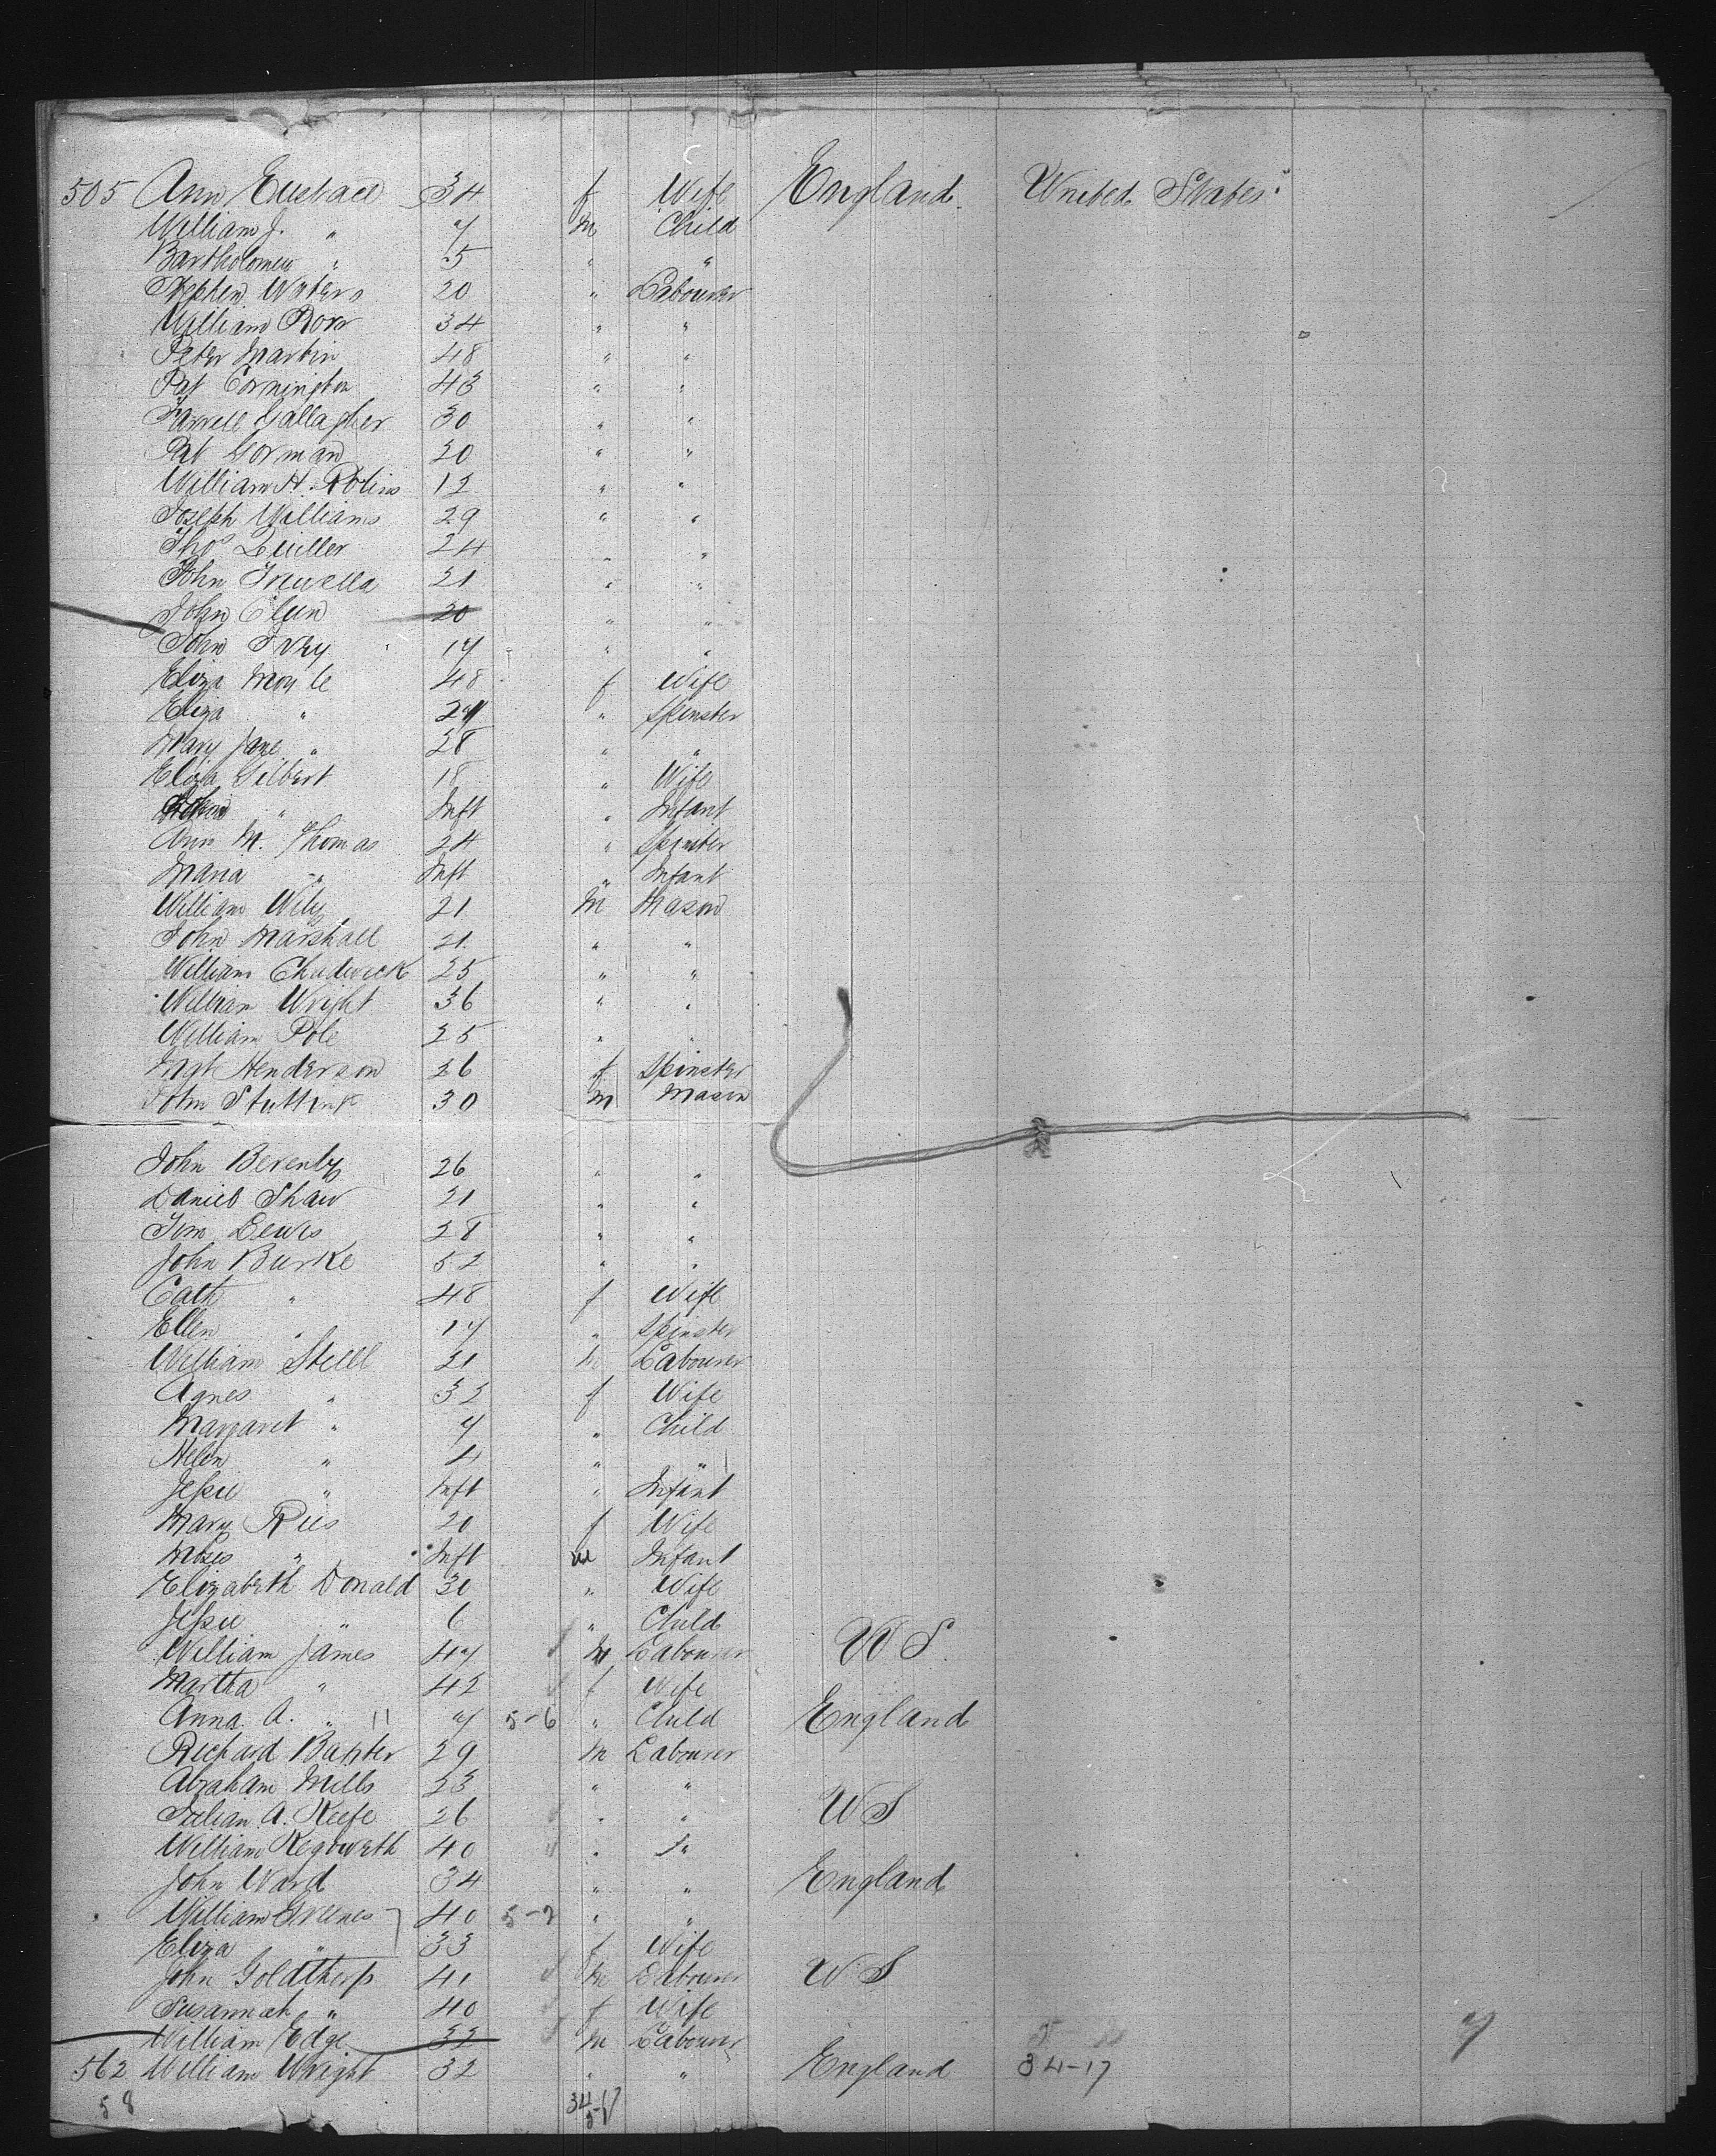 505 Ann Eustace 34 f Wife England United States
William J. " 7 m Child
Bartholomew " 5 " "
Stephen Waters 20 " Labourer
William Rowe 34 " "
Peter Martin 48 " "
Pat Cornington 43 " "
Farrell Gallagher 30 " "
Pat Gorman 20 " "
William H. Robins 12 " "
Joseph Williams 29 " "
Thos Quiller 24 " "
John Trewella 21 " "
John 20 " "
John Ivey 17 " "
Eliza Moyle 48 f Wife
Eliza " " Spinster
Mary Jane " 28 " "
Eliza Gilbert 18 " Wife
" Inft " Infant
Ann M. Thomas 24 " Spinster
Maria " Inft " Infant
William Wily 21 m Mason
John Marshall 21 " "
William Chadwick 25 " "
William Wright 36 " "
William Pole 25 " "
Mgt Henderson 26 f Spinster
John 30 m Mason
John 26 " "
Daniel Shaw 21 " "
Jim Lewis 28 " "
John Burke 52 " "
Cath " 48 f Wife
Ellen " 17 " Spinster
William Stell 21 m Labourer
Agnes " 32 f Wife
Margaret " 7 " Child
Helen " 4 " "
Jessie " Inft " Infant
Mary Rees 20 f Wife
Moses " Inft m Infant
Elizabeth Donald 30 " Wife
Jessie " 6 " Child
William James 47 m Labourer U S.
Martha " 42 f Wife
Anna A. " 11 7 5-6 " Child England
Richard Baxter 29 m Labourer
Abraham Mills 23 " "
A. Keefe 26 " " U S
William Kegworth 40 " "
John Ward 34 " " England
William Greenes 40 5-7 " "
Eliza " 33 f Wife
John Goldthorp 41 m Labourer U S
Susannah " 40 f Wife
William Edge 32 m Labourer
562 William Wright 32 " " England 34-17
58 34